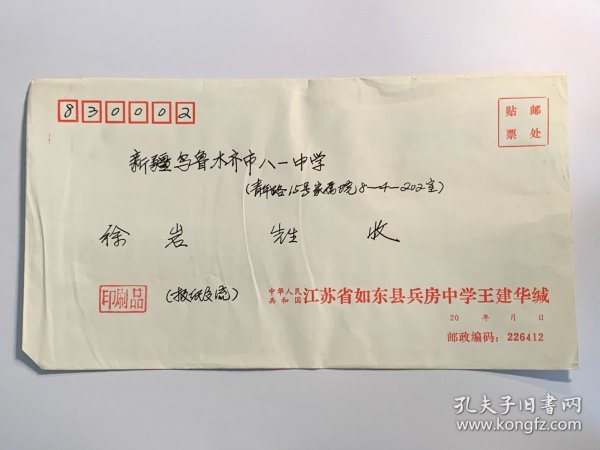 830002
贴 邮
票 处
新疆乌鲁木齐市八一中学
(青年路15号家属院8-4-202室)
徐岩 先生 收
印刷品
(报纸交流)
中华人民
共和国
江苏省如东县兵房中学王建华缄
20 年 月 日
邮政编码：226412
孔夫子旧书网
www.kongfz.com